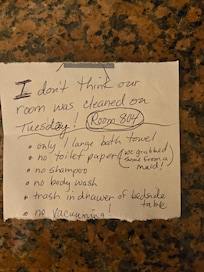 I don't think our
room was cleaned on
Tuesday! Room 804
• only 1 large bath towel
• no toilet paper (we grabbed
some from a
maid!)
• no shampoo
• no body wash
• trash in drawer of bedside
table
• no vacuuming!